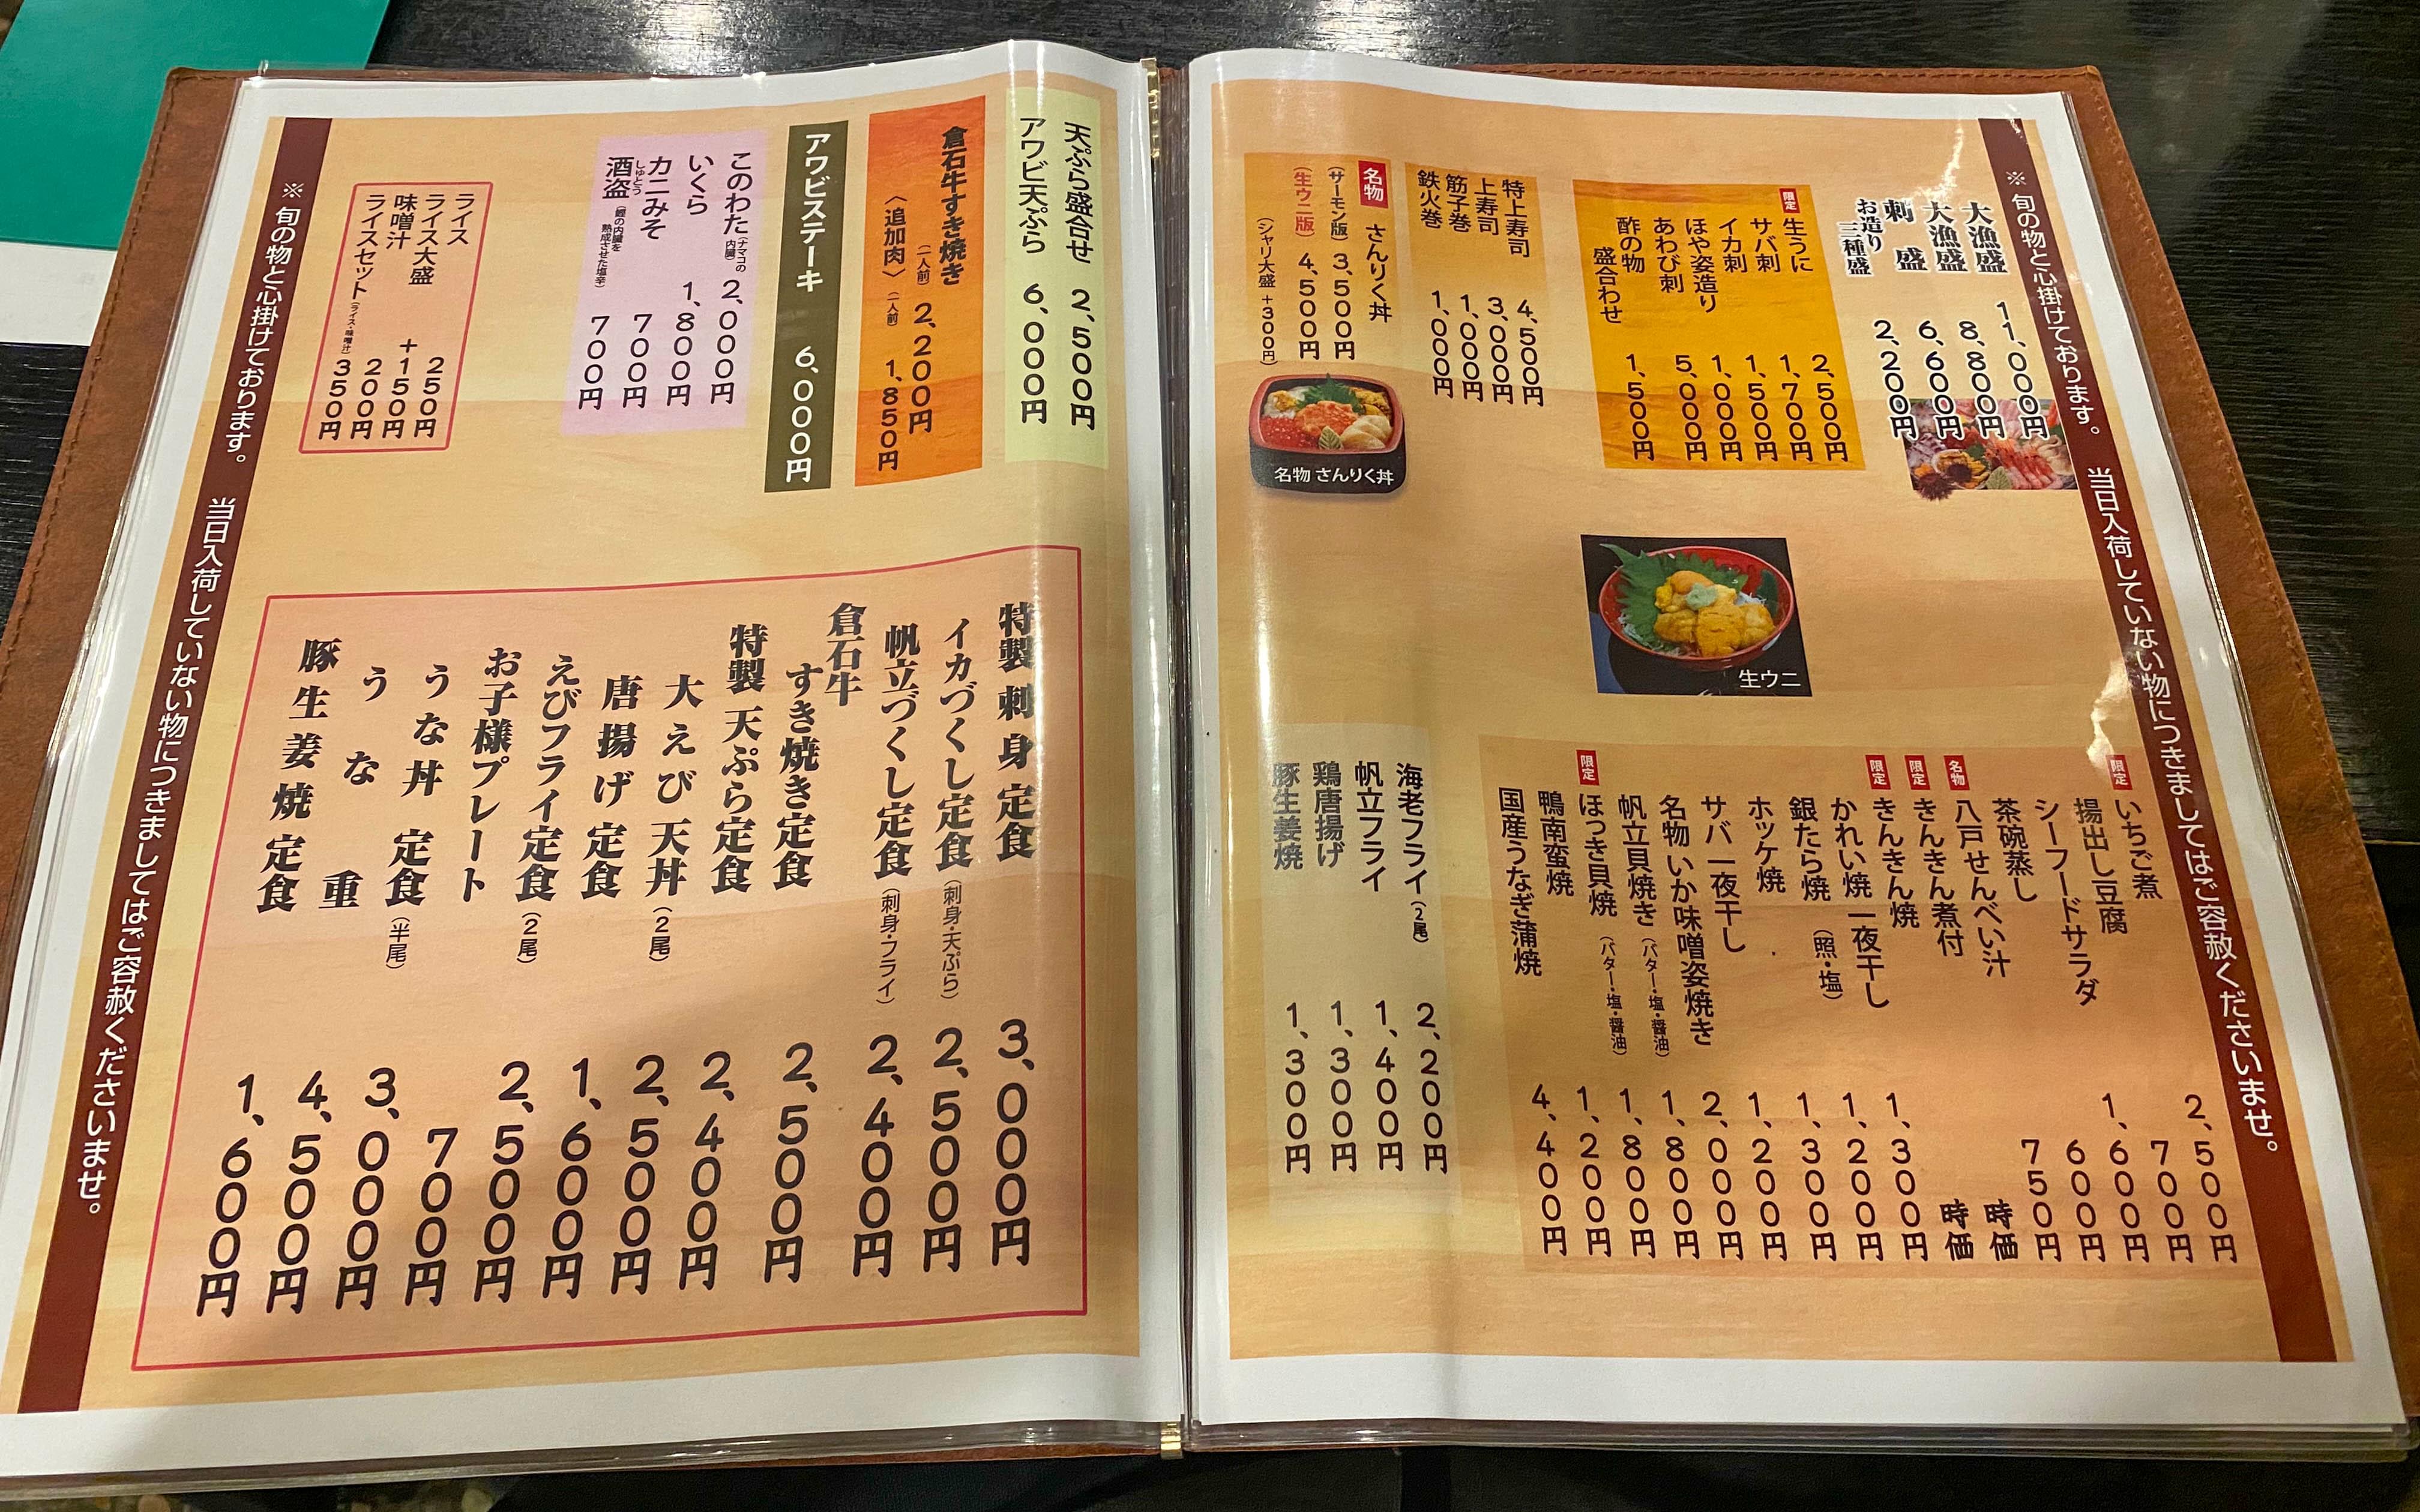 ※ 旬の物と心掛けております。 当日入荷していない物につきましてはご容赦くださいませ。
大漁盛 11,000円
大漁盛 8,800円
刺盛 6,600円
お造り三種盛 2,200円
限定 生うに 2,500円
サバ刺 1,700円
イカ刺 1,500円
ほや姿造り 1,000円
あわび刺 5,000円
酢の物盛合わせ 1,500円
特上寿司 4,500円
上寿司 3,000円
筋子巻 1,000円
鉄火巻 1,000円
名物 さんりく丼
(サーモン版) 3,500円
(生ウニ版) 4,500円
(シャリ大盛 +300円)
名物 さんりく丼
生ウニ
限定 いちご煮 2,500円
揚出し豆腐 700円
シーフードサラダ 1,600円
茶碗蒸し 600円
名物 八戸せんべい汁 750円
限定 きんきん煮付 時価
限定 きんきん焼 時価
かれい焼 一夜干し 1,300円
銀たら焼 (照・塩) 1,200円
ホッケ焼 1,300円
サバ 一夜干し 1,200円
名物 いか味噌姿焼き 2,000円
帆立貝焼き (バター・塩・醤油) 1,800円
限定 ほっき貝焼 (バター・塩・醤油) 1,800円
鴨南蛮焼 1,200円
国産うなぎ蒲焼 4,400円
海老フライ (2尾) 2,200円
帆立フライ 1,400円
鶏唐揚げ 1,300円
豚生姜焼 1,300円
天ぷら盛合せ 2,500円
アワビ天ぷら 6,000円
倉石牛すき焼き (一人前) 2,200円
〈追加肉〉 (一人前) 1,850円
アワビステーキ 6,000円
このわた (ナマコの内臓) 2,000円
いくら 1,800円
カニみそ 700円
酒盗 しゅとう (鰹の内臓を熟成させた塩辛) 700円
ライス 250円
ライス大盛 +150円
味噌汁 200円
ライスセット (ライス・味噌汁) 350円
特製刺身定食 3,000円
イカづくし定食 (刺身・天ぷら) 2,500円
帆立づくし定食 (刺身・フライ) 2,400円
倉石牛すき焼き定食 2,500円
特製天ぷら定食 2,400円
大えび天丼 (2尾) 2,500円
唐揚げ定食 1,600円
えびフライ定食 (2尾) 2,500円
お子様プレート 700円
うな丼 定食 (半尾) 3,000円
うな重 4,500円
豚生姜焼定食 1,600円
※ 旬の物と心掛けております。 当日入荷していない物につきましてはご容赦くださいませ。